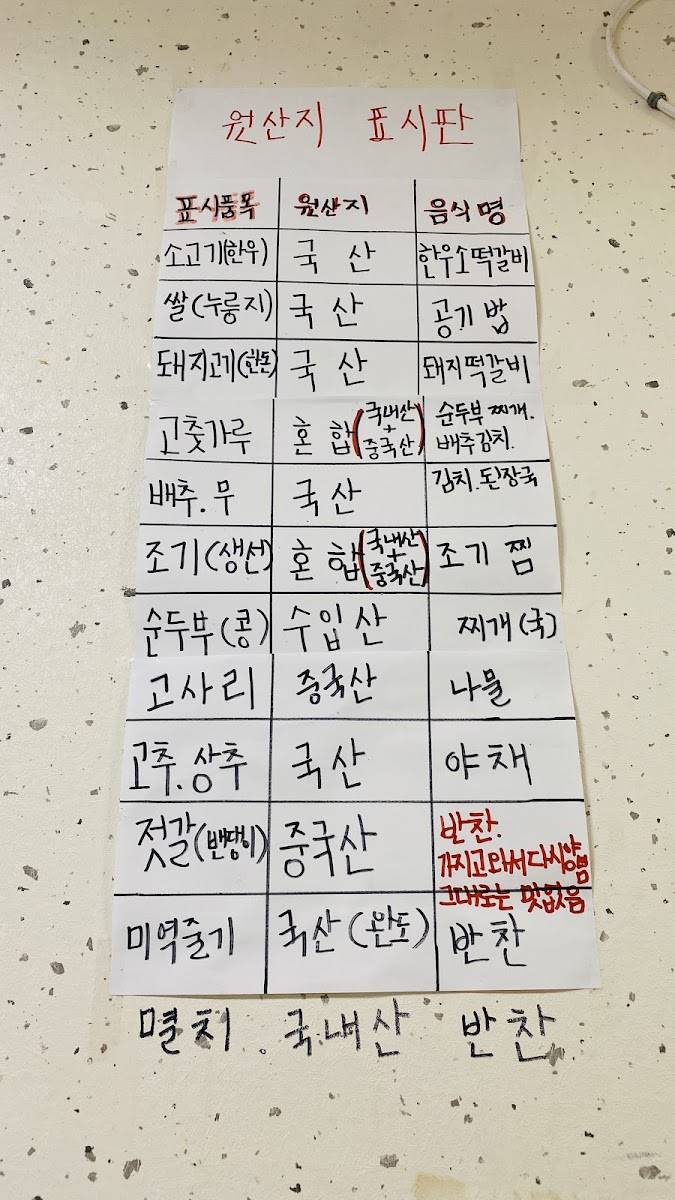 원산지 표시판
표시품목 원산지 음식명
소고기(한우) 국산 한우소떡갈비
쌀(누룽지) 국산 공기밥
돼지고기(한돈) 국산 돼지떡갈비
고춧가루 혼합(국내산+중국산) 순두부찌개.
배추김치.
배추.무 국산 김치.된장국
조기(생선) 혼합(국내산+중국산) 조기찜
순두부(콩) 수입산 찌개(국)
고사리 중국산 나물
고추.상추 국산 야채
젓갈(밴댕이) 중국산 반찬.
가지고와서다시양념
그대로는 맛없음
미역줄기 국산(완도) 반찬
멸치. 국내산 반찬